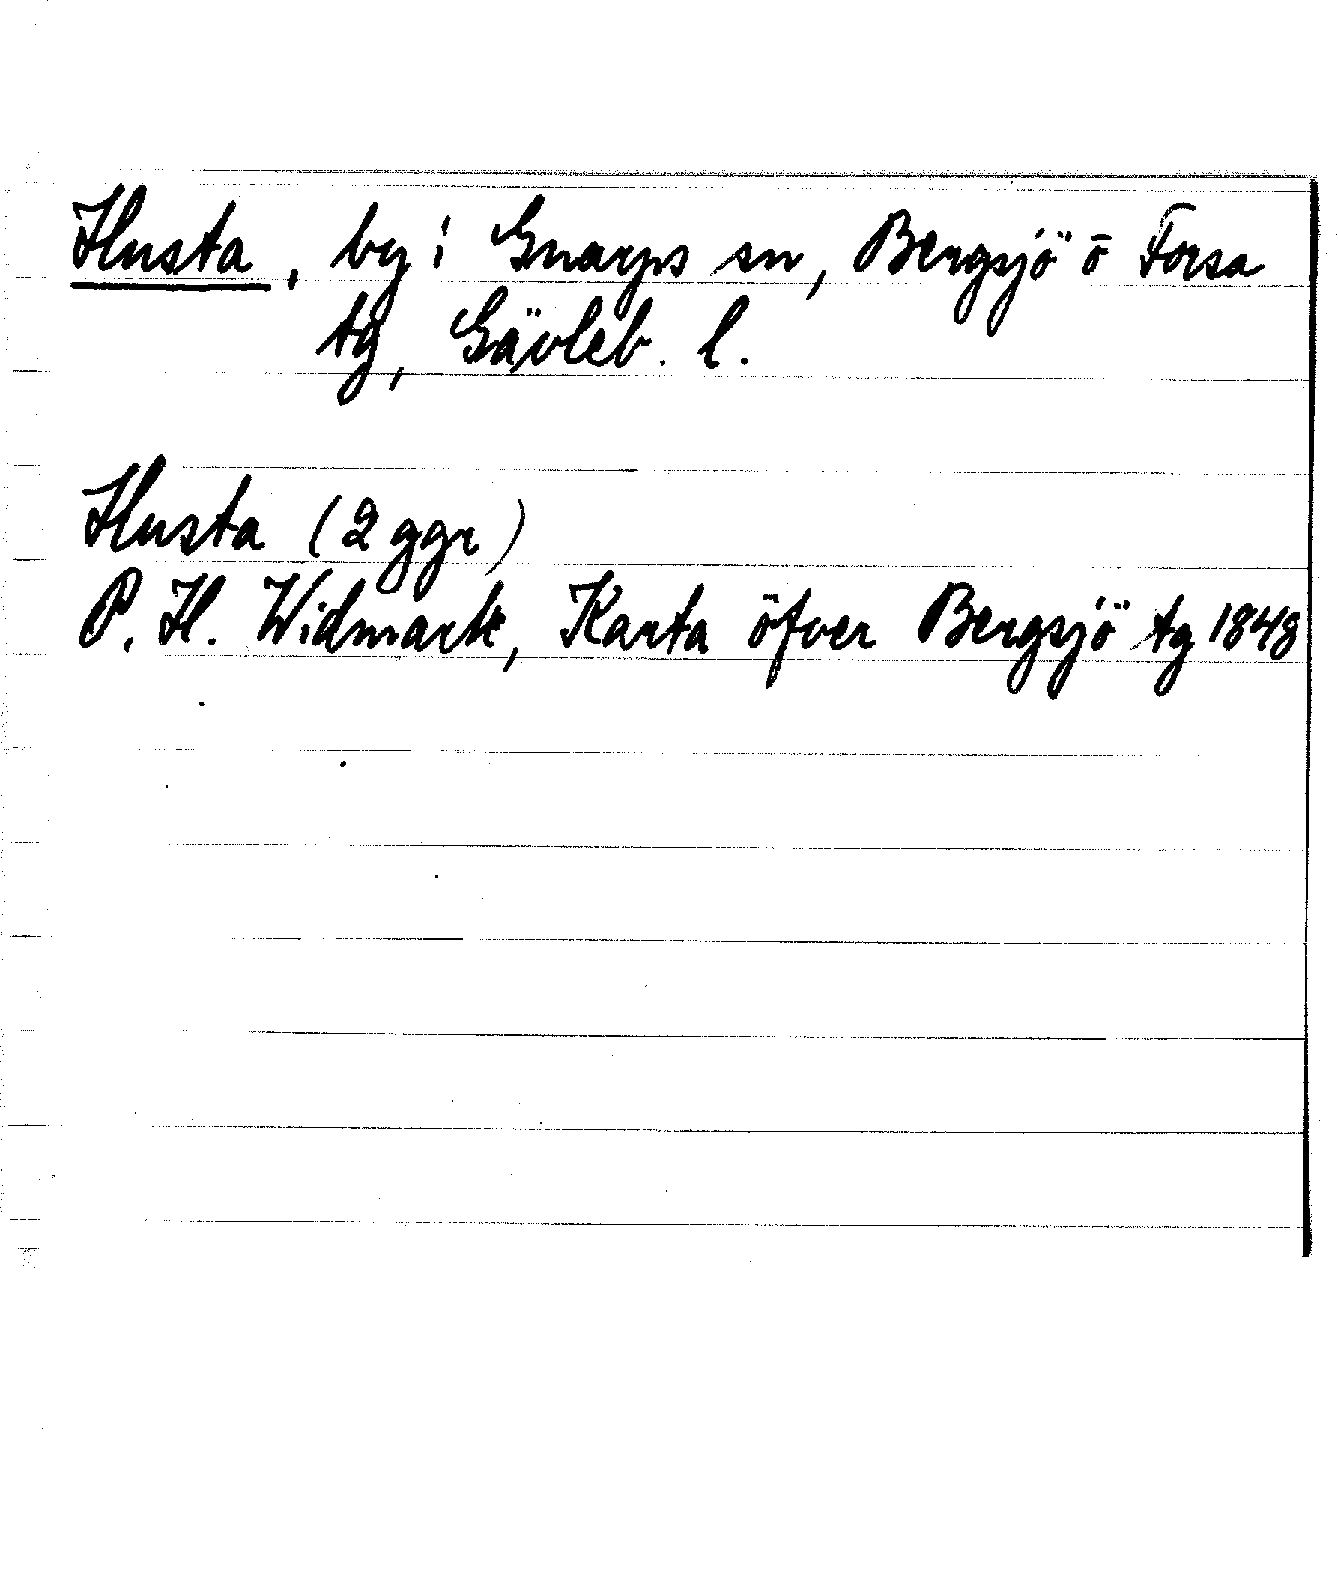 Husta, by i Gnarps sn, Bergsjö ō Forsa
tg, Gävleb. l.
Husta (2 ggr)
P. H. Widmark, Karta öfver Bergsjö tg 1848